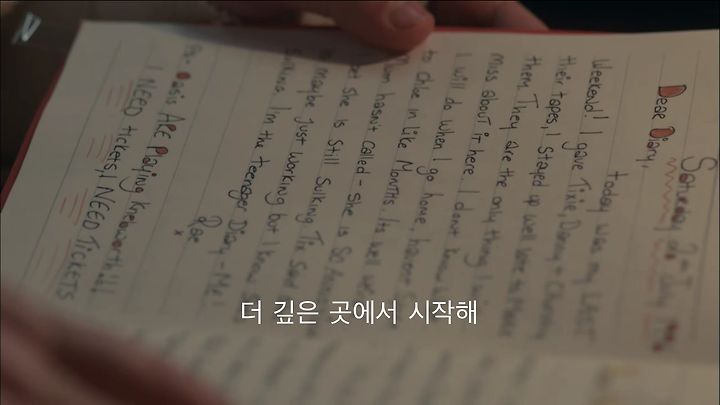 Saturday July
Dear Diary,
Today was my LAST
Weekend! I gave Tixie, Danny + Chunky
their tapes, I stayed up well late to make
them. They are the only thing I
miss about it here. I don't know
I will do when I go home, haven't
to Chloe in like Months. Its well
Mum hasn't called - she is so
she is still sulking. Tix said
maybe just working but I know
sulking I'm the teenager Diary - Me!
Rae
x
Ps - Oasis ARE Playing Knebworth!!!
I NEED tickets, I NEED TICKETS
더 깊은 곳에서 시작해